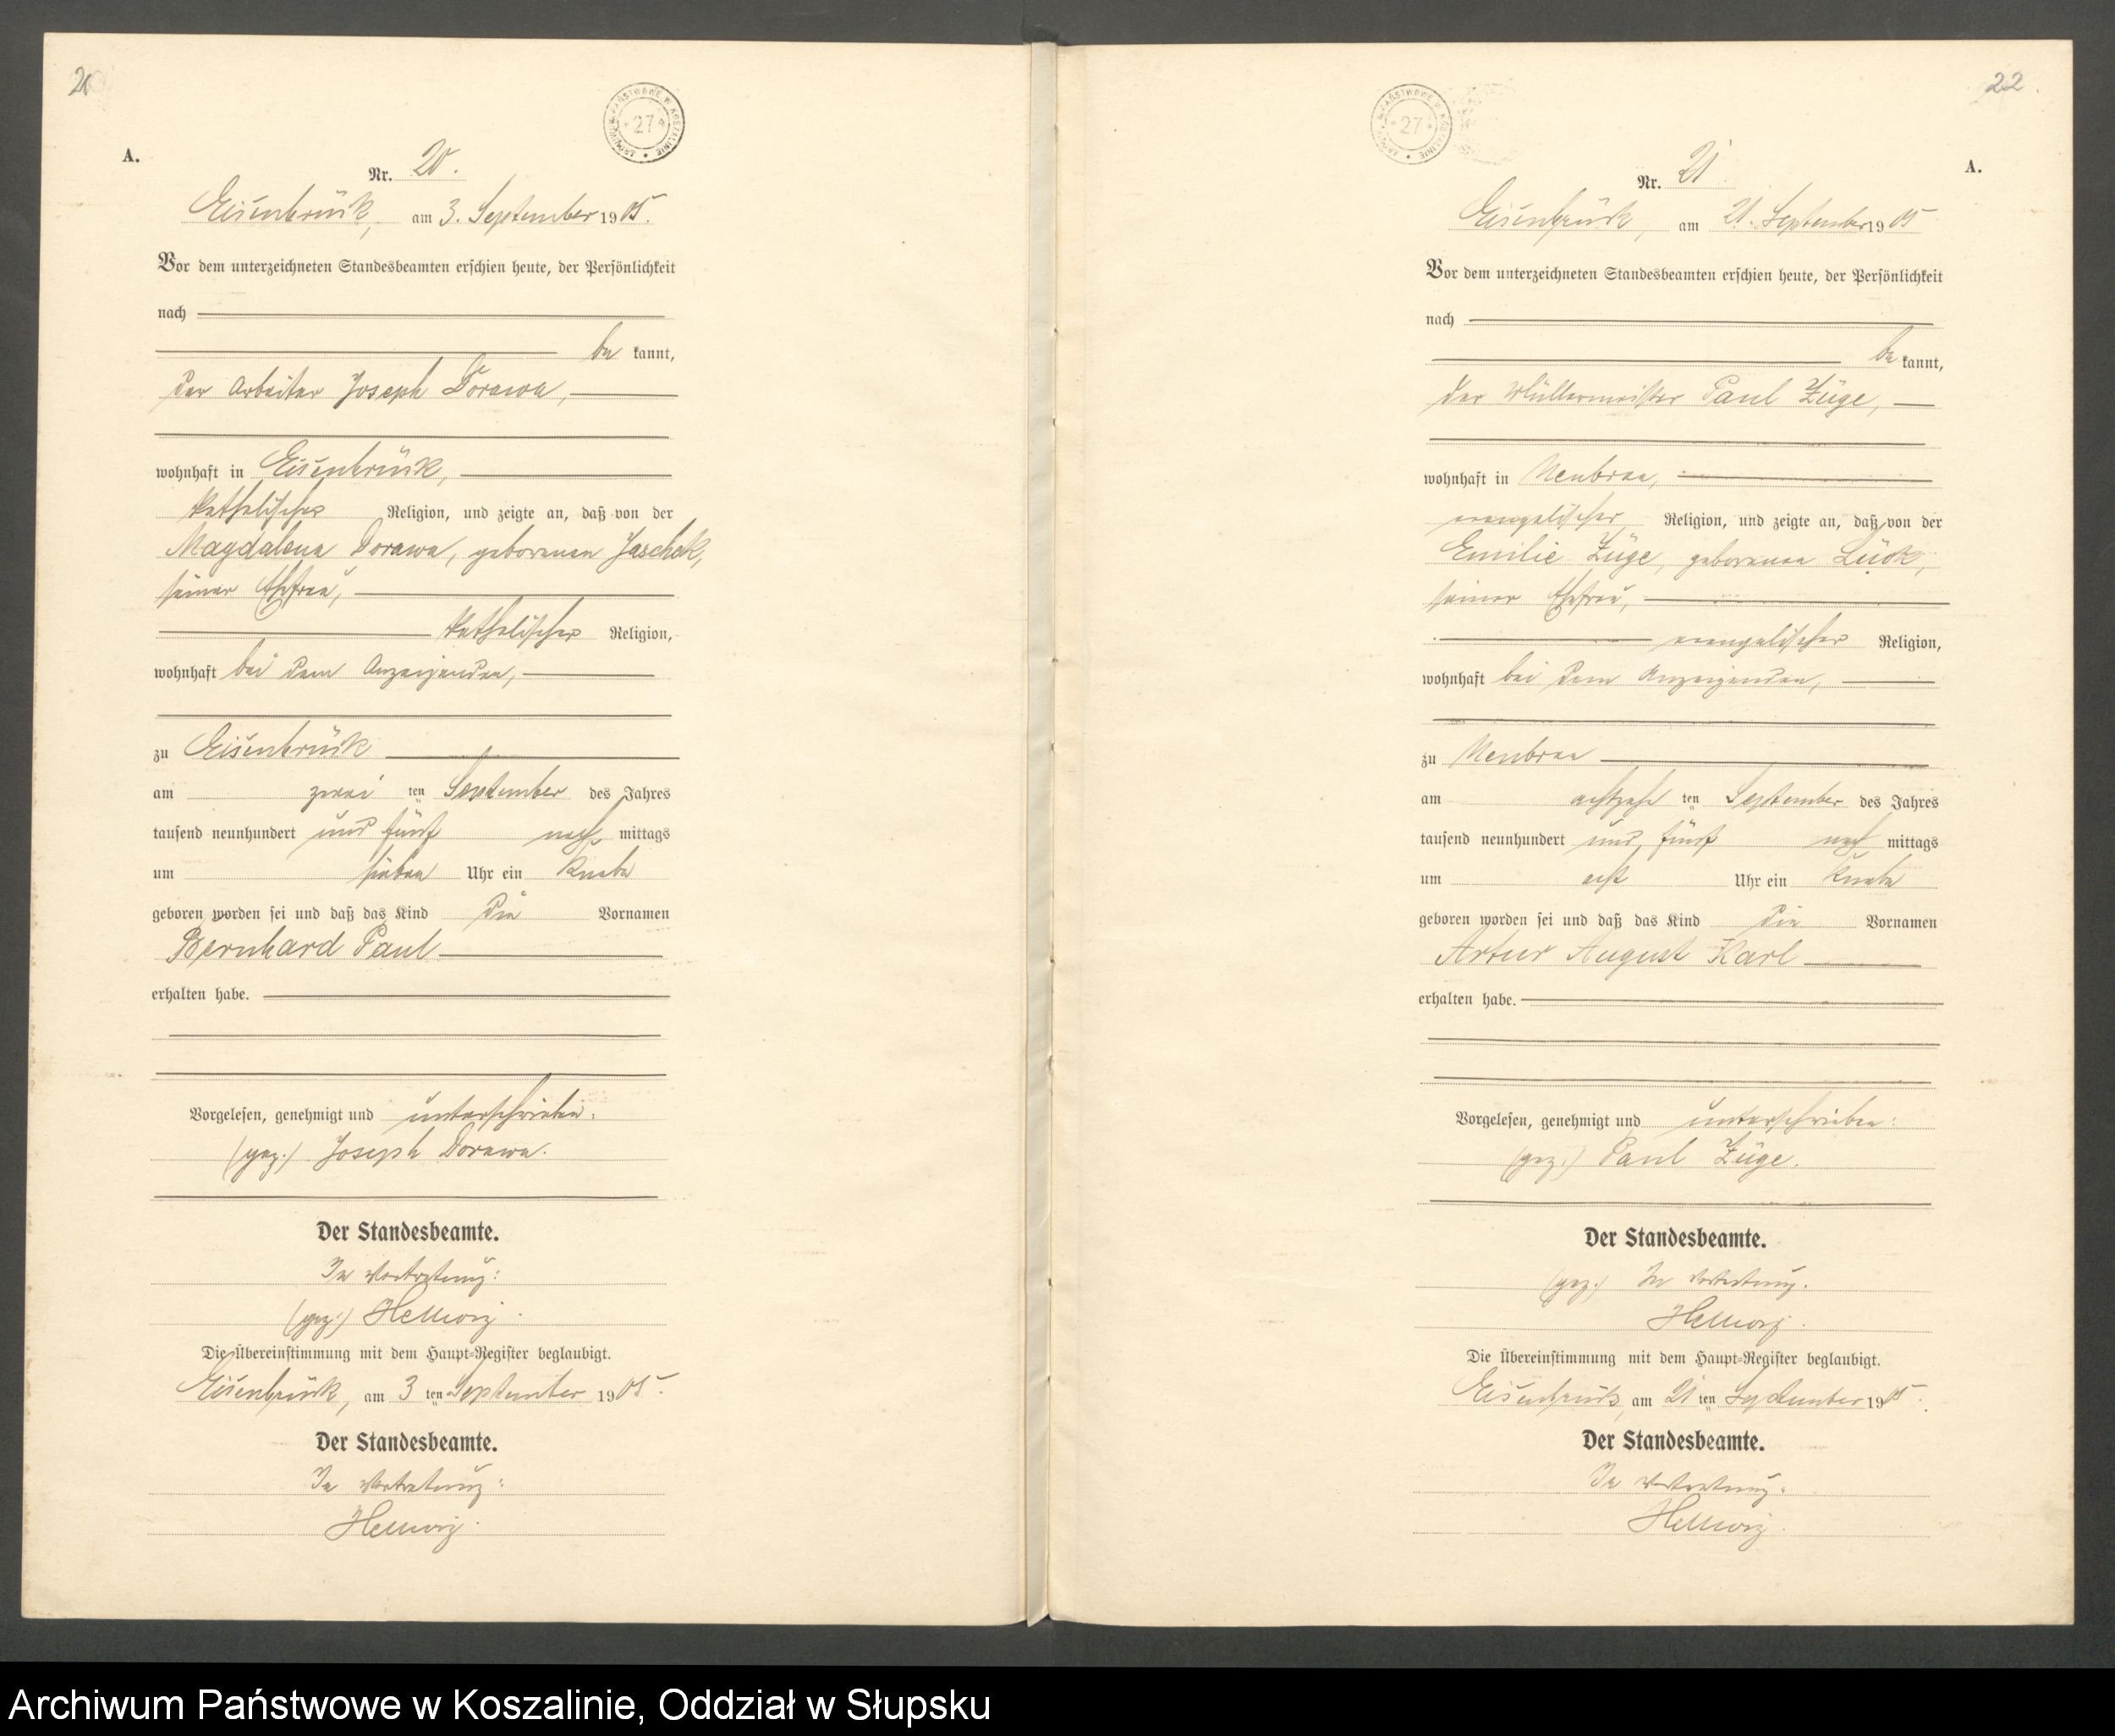 A.
Nr. 20.
Eisenbrück, am 3. September 1905.
Vor dem unterzeichneten Standesbeamten erschien heute, der Persönlichkeit
nach
be kannt,
der Arbeiter Joseph Dorawa,
wohnhaft in Eisenbrück,
katholischer Religion, und zeigte an, daß von der
Magdalena Dorawa, geborenen Jaschek,
seiner Ehefrau,
katholischer Religion,
wohnhaft bei dem Anzeigenden,
zu Eisenbrück
am zwei ten September des Jahres
tausend neunhundert und fünf nach mittags
um sieben Uhr ein Knabe
geboren worden sei und daß das Kind die Vornamen
Bernhard Paul
erhalten habe.
Vorgelesen, genehmigt und unterschrieben:
(gez.) Joseph Dorawa.
Der Standesbeamte.
In Vertretung:
(gez.) Hellwig.
Die Übereinstimmung mit dem Haupt-Register beglaubigt.
Eisenbrück, am 3 ten September 1905.
Der Standesbeamte.
In Vertretung:
Hellwig.
22
ARCHIWUM PAŃSTWOWE W KOSZALINIE
27
A.
Nr. 21
Eisenbrück, am 21. September 1905
Vor dem unterzeichneten Standesbeamten erschien heute, der Persönlichkeit
nach
be kannt,
der Müllermeister Paul Züge,
wohnhaft in Neubraa,
evangelischer Religion, und zeigte an, daß von der
Emilie Züge, geborenen Lück,
seiner Ehefrau,
evangelischer Religion,
wohnhaft bei dem Anzeigenden,
zu Neubraa
am achtzehn ten September des Jahres
tausend neunhundert und fünf nach mittags
um acht Uhr ein Knabe
geboren worden sei und daß das Kind die Vornamen
Artur August Karl
erhalten habe.
Vorgelesen, genehmigt und unterschrieben:
(gez.) Paul Züge.
Der Standesbeamte.
(gez.) In Vertretung.
Hellwig.
Die Übereinstimmung mit dem Haupt-Register beglaubigt.
Eisenbrück, am 21 ten September 1905.
Der Standesbeamte.
In Vertretung:
Hellwig.
Archiwum Państwowe w Koszalinie, Oddział w Słupsku